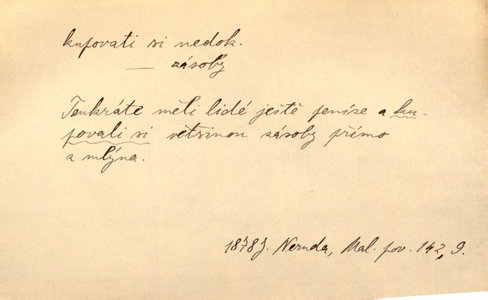 kupovati si nedok.
— zásoby
Tenkráte měli lidé ještě peníze a ku-
povali si většinou zásoby přímo
a mlýna.
1878 J. Neruda, Mal. pov. 142, 9.